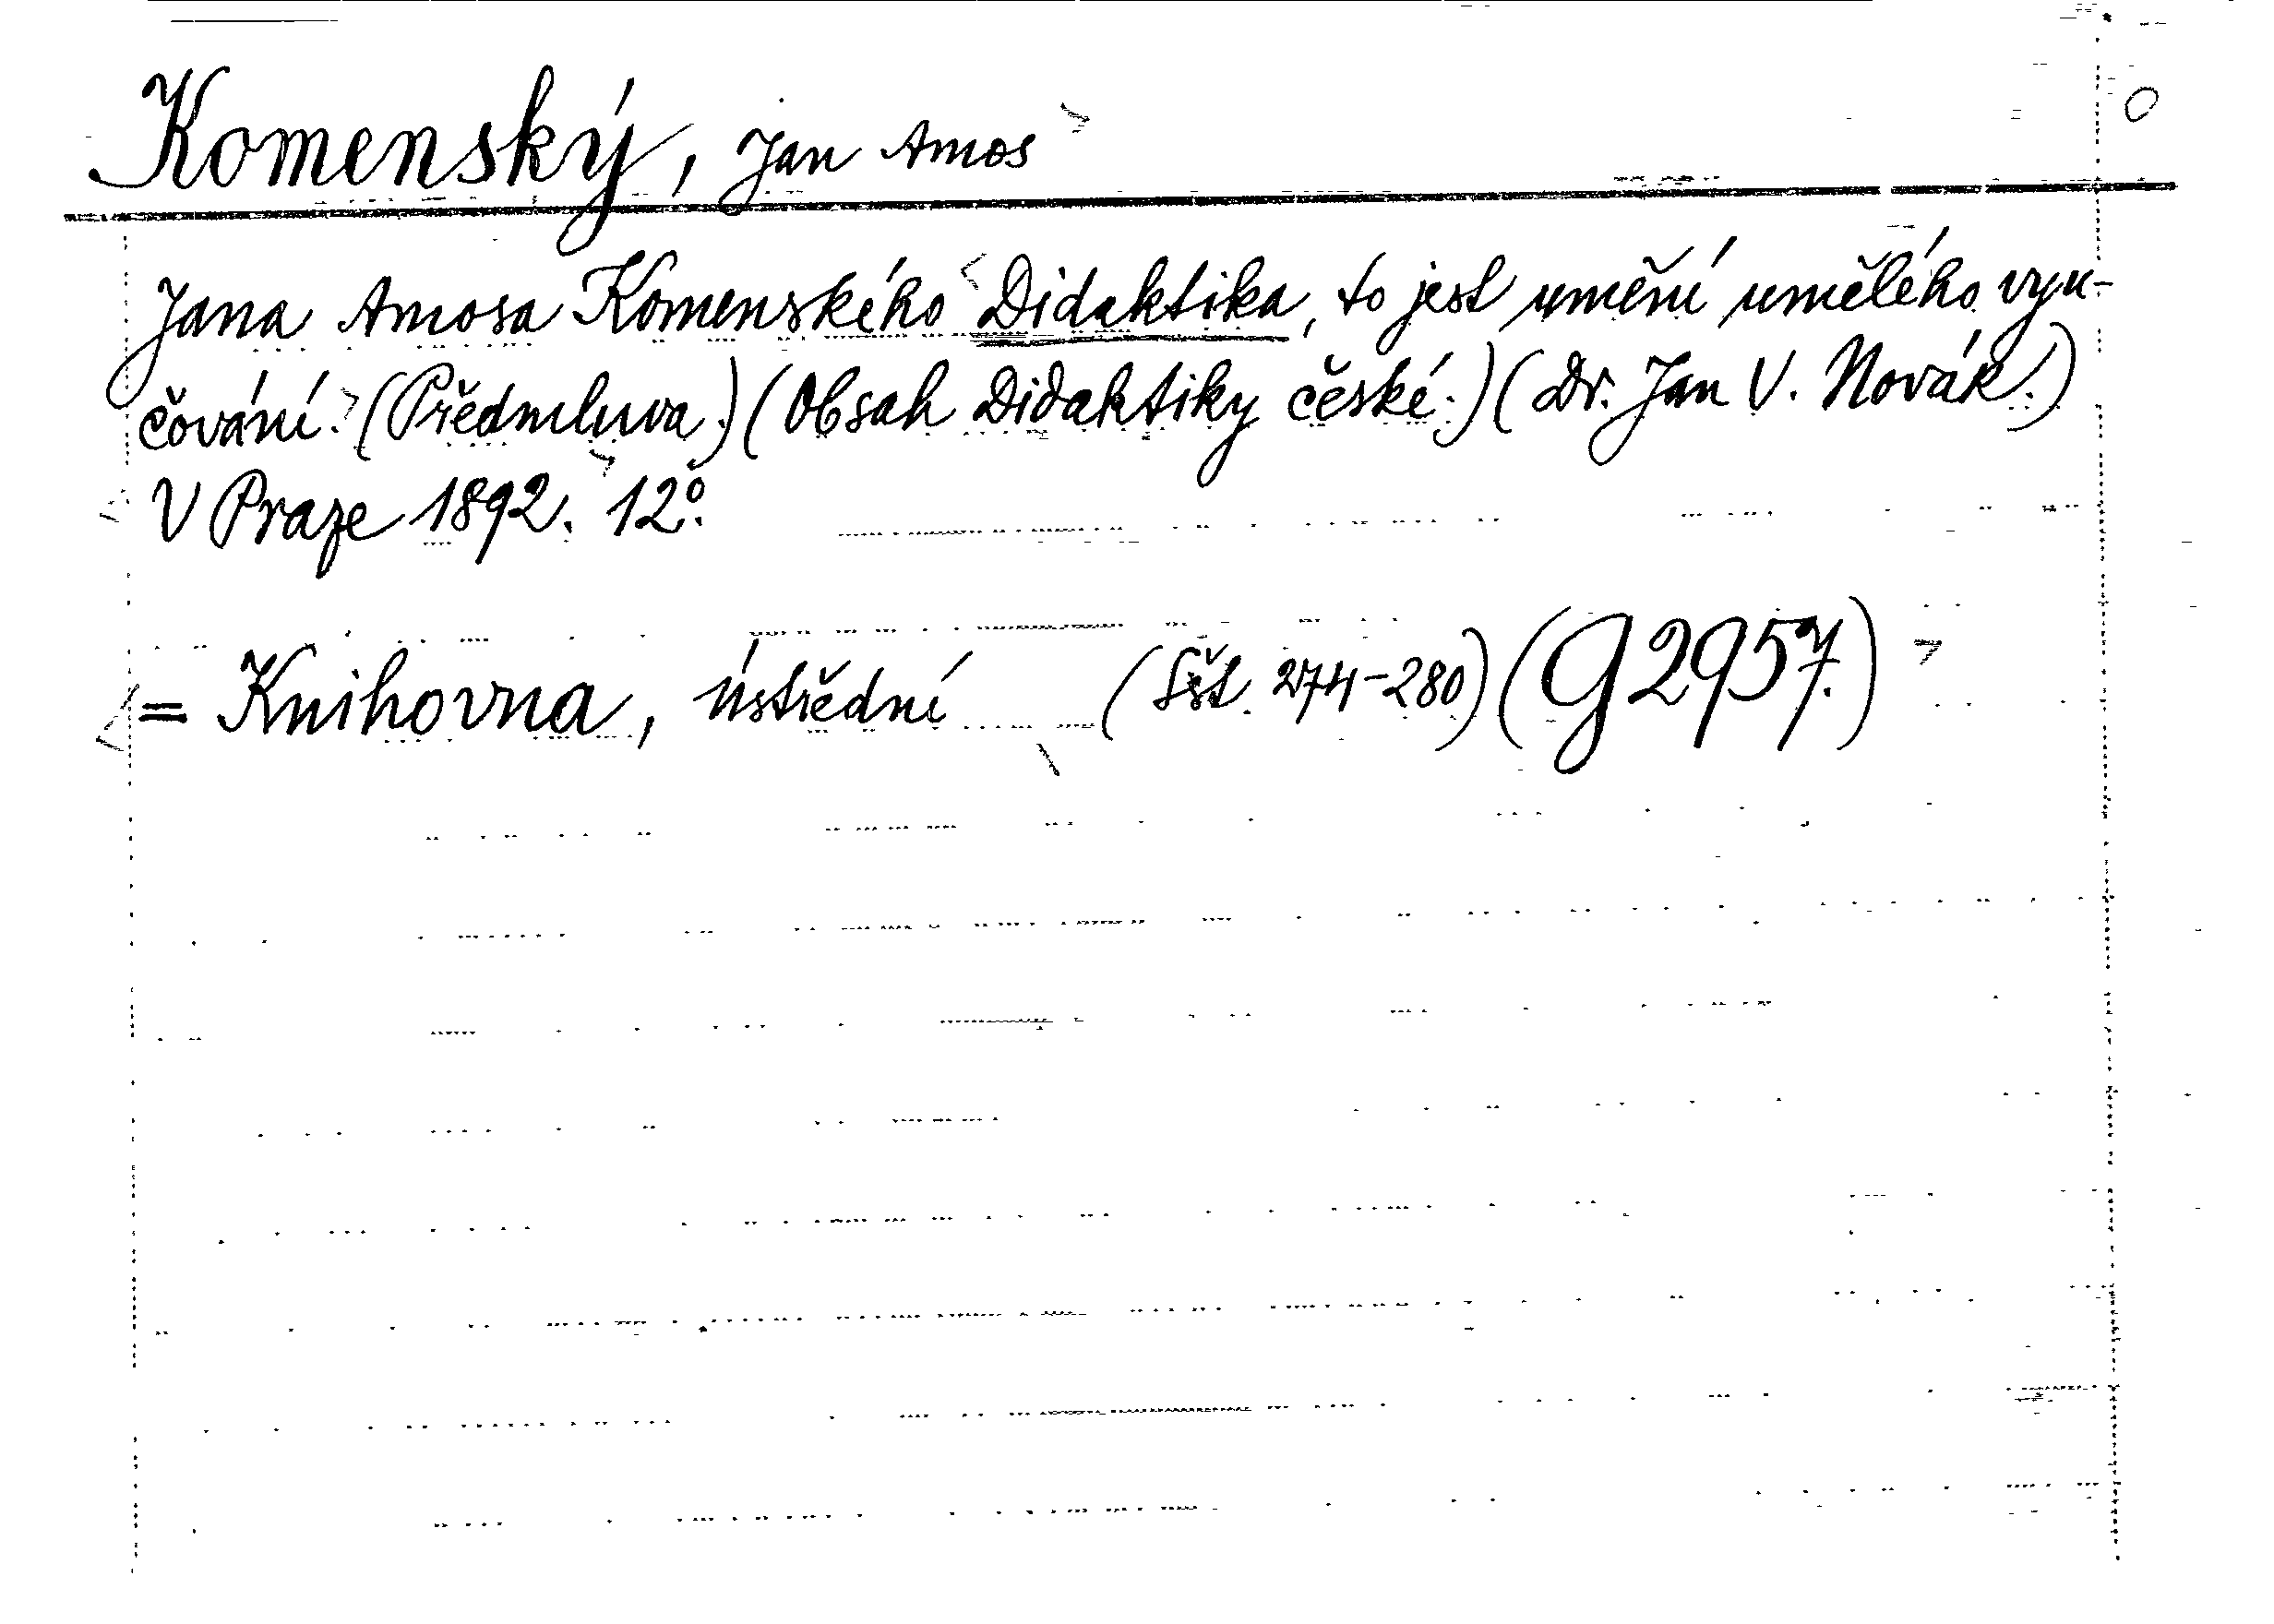 Komenský, Jan Amos
Jana Amosa Komenského Didaktika, to jest umění umělého vyu-
čování. (Předmluva.) (Obsah Didaktiky české.) (Dr. Jan V. Novák.)
V Praze 1892. 12°.
= Knihovna, ústřední (Sšt. 274-280) (G 2957.)